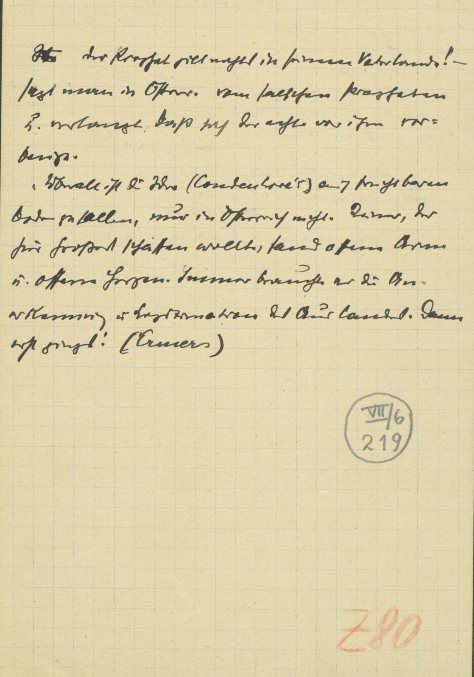 der Prophet gilt nichts in seinem Vaterlande! –
sagt man in Österr. vom falschen Propheten
u. verlangt, daß sich der echte vor ihm ver=
beuge.
"Überall ist die Idee (Coudenhove's) auf fruchtbaren
Boden gefallen, nur in Österreich nicht. Keiner, der
hier Großes schaffen wollte, fand offene Arme
u. offene Herzen. Immer brauchte er die An-
erkennung u Legitimation des Auslandes. Dann
erst gings! (Ermers)
VII/6
219
Z80